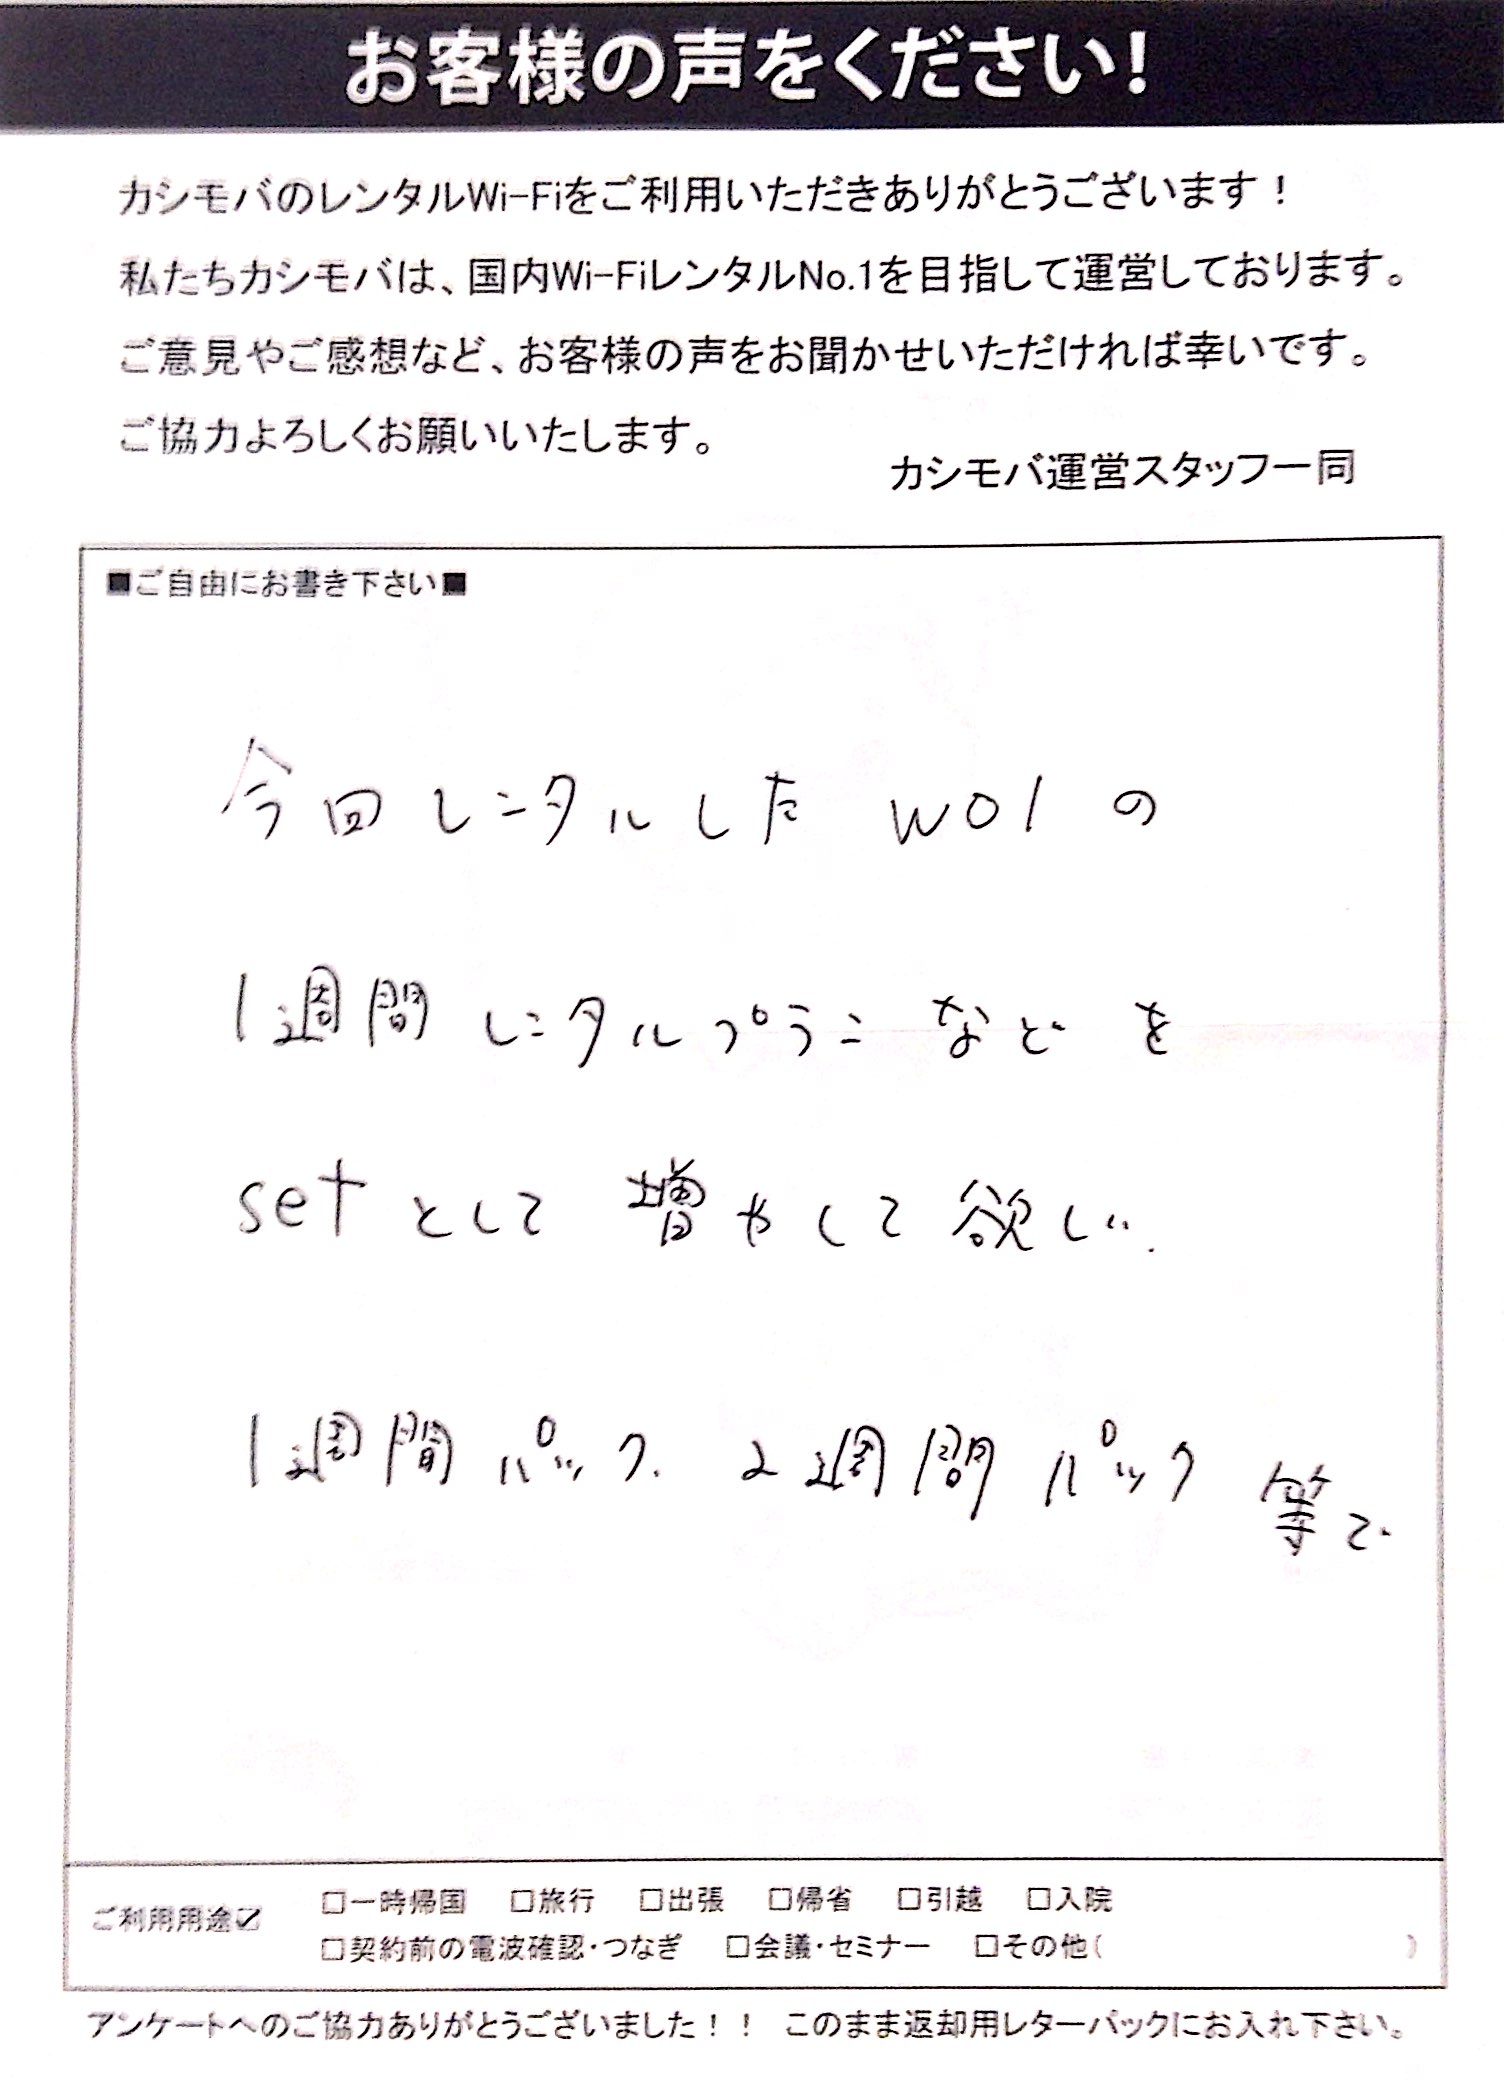 お客様の声をください!
カシモバのレンタルWi-Fiをご利用いただきありがとうございます！
私たちカシモバは、国内Wi-FiレンタルNo.1を目指して運営しております。
ご意見やご感想など、お客様の声をお聞かせいただければ幸いです。
ご協力よろしくお願いいたします。
カシモバ運営スタッフ一同
■ご自由にお書き下さい■
今回レンタルした W01 の
1週間レンタルプランなどを
setとして 増やして欲しい.
1週間パック. 2週間パック 等で
ご利用用途☑ □一時帰国 □旅行 □出張 □帰省 □引越 □入院
□契約前の電波確認・つなぎ □会議・セミナー □その他( )
アンケートへのご協力ありがとうございました！！ このまま返却用レターパックにお入れ下さい。